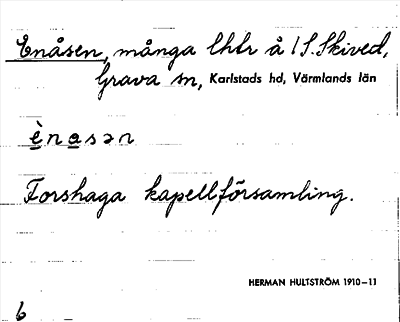 Enåsen, många lhtr å 1 S. Skived,
Grava sn, Karlstads hd, Värmlands län
ènasən
Forshaga kapellförsamling.
HERMAN HULTSTRÖM 1910–11
6